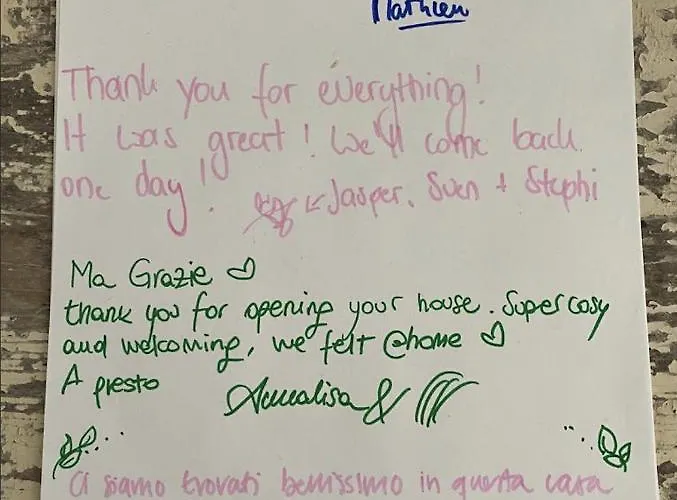 Mathieu
Thank you for everything!
It was great! We'll come back
one day! Jasper, Sven + Stephi
Ma Grazie
thank you for opening your house. Super cosy
and welcoming, we felt @home
A presto
Annalisa &
Ci siamo trovati benissimo in questa casa